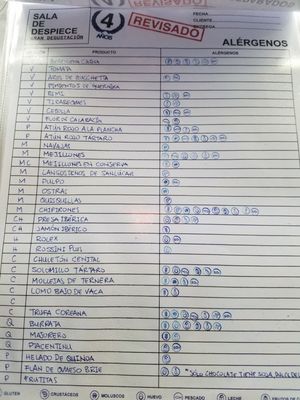 SALA DE DESPIECE
GRAN DEGUSTACIÓN
4 AÑOS
REVISADO
FECHA
CLIENTE
ALÉRGENOS
PRODUCTO
V TOMATA
V
V PIMIENTOS DE GUERNIKA
V
V TIRABEQUES
V CEBOLLA
V FLOR DE CALABACÍN
P ATÚN ROJO A LA PLANCHA
P ATÚN ROJO TARTARO
M NAVAJAS
M MEJILLONES
MC MEJILLONES EN CONSERVA
M LANGOSTINOS DE SANLÚCAR
M PULPO
M OSTRAS
M QUISQUILLAS
M CHIPIRONES
CH PRESA IBÉRICA
CH JAMÓN IBÉRICO
H ROLEX
H ROSSINI PLUS
C CHULETÓN CENITAL
C SOLOMILLO TARTARO
C MOLLEJAS DE TERNERA
C LOMO BAJO DE VACA
C
C TRUFA COREANA
Q BURRATA
Q MAJORERO
Q PIACENTINU
P HELADO DE QUINOA
P FLAN DE QUESO BRIE
*SOLO CHOCOLATE TIENE SOJA
P FRUTITAS
GLUTEN CRUSTÁCEOS MOLUSCOS HUEVO PESCADO